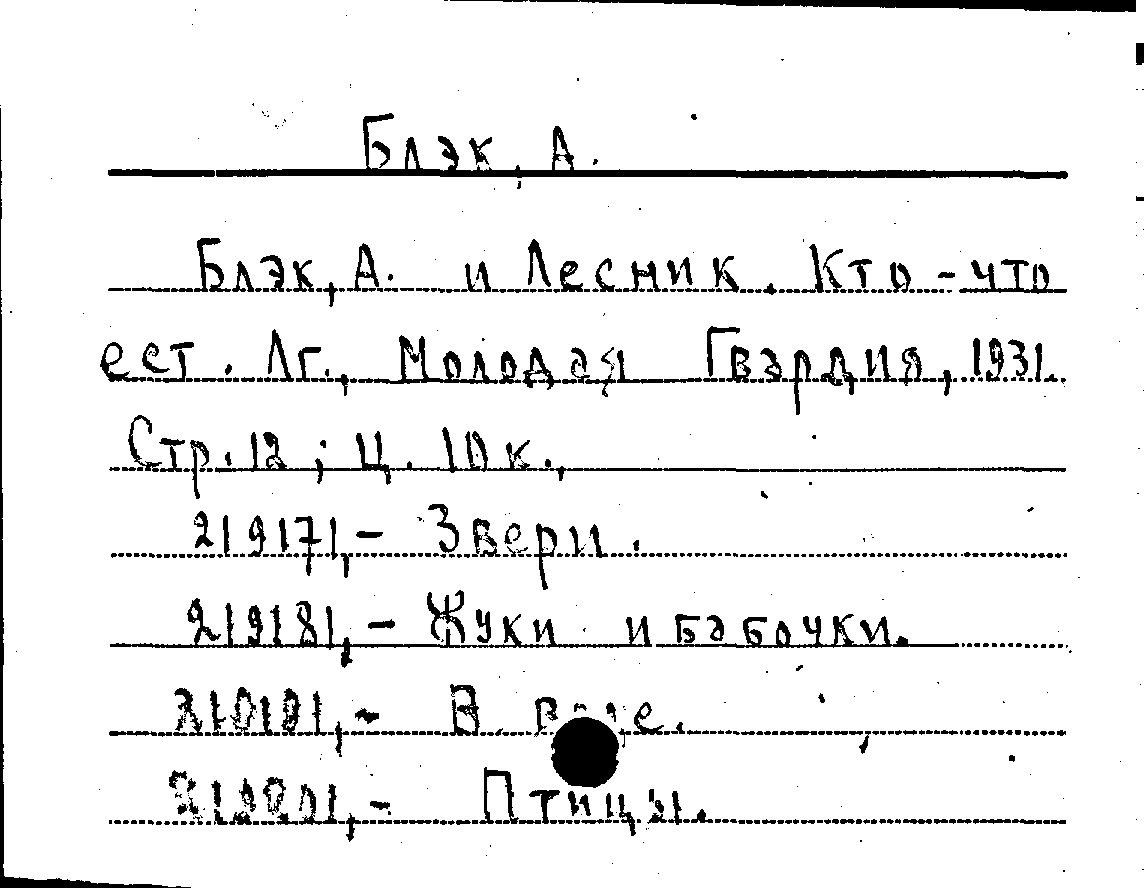 Блэк, А.
Блэк, А. и Лесник. Кто-что
ест. Лг., Молодая Гвардия, 1931.
Стр. 12; ц. 10 к.,
219171,- Звери.
219181,- Жуки и бабочки.
В воде.
Птицы.